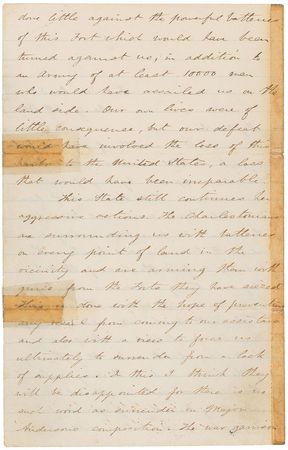 done little against the powerful batteries
of this Fort which would have been
turned against us, in addition to
an Army of at least 10000 men
who would have assailed us on the
land side. Our own lives were of
little consequence, but our defeat
would have involved the loss of this
harbor to the United States, a loss
that would have been irreparable.
This State still continues her
aggressive actions. The Charlestonians
are surrounding us with batteries
on every point of land in the
vicinity and are arming them with
guns from the forts they have seized
This is done with the hope of preventing
any vessel from coming to our assistance
and also with a view to force us
ultimately to surrender from a lack
of supplies. In this I think they
will be disappointed for there is no
such word as surrender in Major
Andersons composition. The war